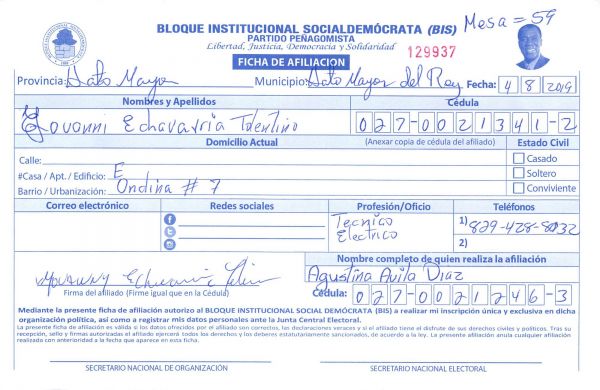 BLOQUE INSTITUCIONAL SOCIALDEMÓCRATA (BIS) Mesa = 59
PARTIDO PEÑAGOMISTA
Libertad, Justicia, Democracia y Solidaridad
129937
FICHA DE AFILIACION
Provincia: Hato Mayor Municipio: Hato Mayor del Rey Fecha: 4 8 2019
Nombres y Apellidos Cédula
Yovanni Echavarria Tolentino 027-0021341-2
Domicilio Actual (Anexar copia de cédula del afiliado) Estado Civil
Calle: Casado
#Casa / Apt. / Edificio: E Soltero
Barrio / Urbanización: Ondina # 7 Conviviente
Correo electrónico Redes sociales Profesión/Oficio Teléfonos
Tecnico 1) 829-428-8032
Electrico 2)
Nombre completo de quien realiza la afiliación
Agustina Avila Diaz
Firma del afiliado (Firme igual que en la Cédula) Cédula: 027-0021246-3
Mediante la presente ficha de afiliación autorizo al BLOQUE INSTITUCIONAL SOCIAL DEMÓCRATA (BIS) a realizar mi inscripción única y exclusiva en dicha
organización política, así como a registrar mis datos personales ante la Junta Central Electoral.
La presente ficha de afiliación es válida si los datos ofrecidos por el afiliado son correctos, las declaraciones veraces y si el afiliado tiene el disfrute de sus derechos civiles y políticos. Tras su
recepción, sello y firmas autorizadas el afiliado ejercerá todos los derechos y los deberes estatutariamente sancionados, de acuerdo a la ley. La presente afiliación anula cualquier afiliación
realizada con anterioridad a la fecha que aparece en esta ficha.
SECRETARIO NACIONAL DE ORGANIZACIÓN SECRETARIO NACIONAL ELECTORAL